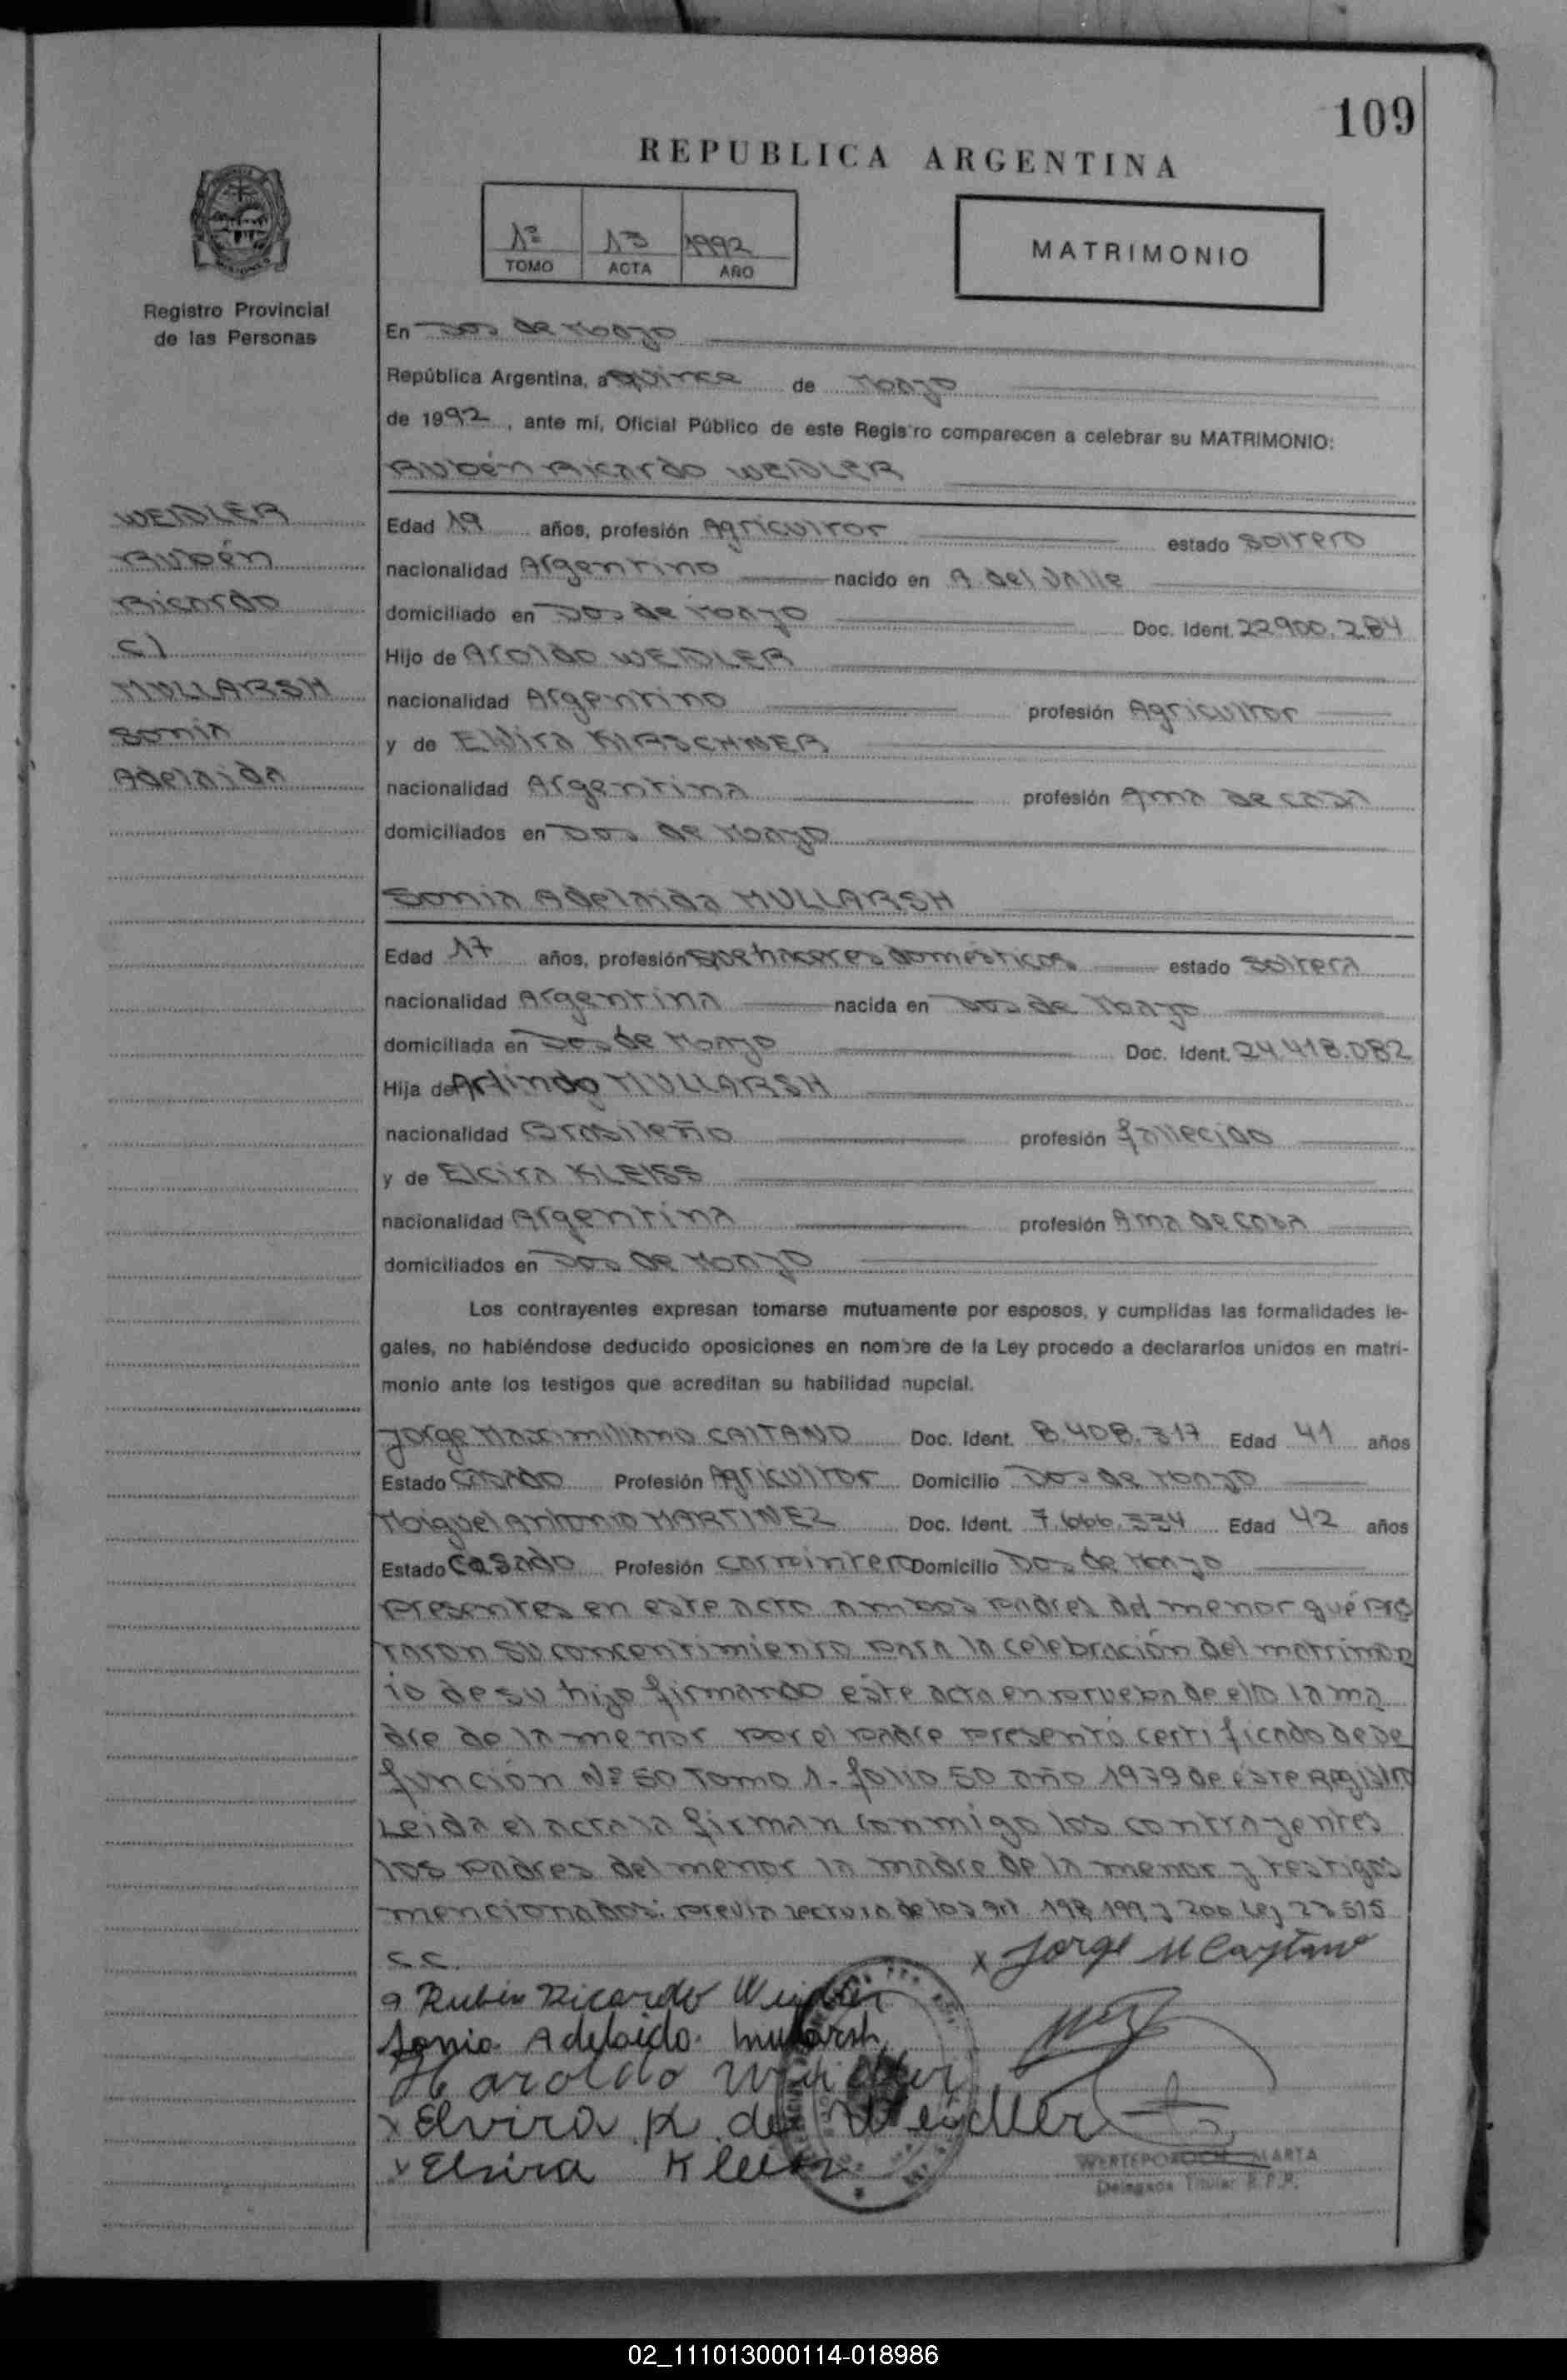 109
REPUBLICA ARGENTINA
1º 13 1992
TOMO ACTA AÑO
MATRIMONIO
Registro Provincial
de las Personas
En Dos de Mayo
República Argentina, a quince de Mayo
de 1992, ante mí, Oficial Público de este Registro comparecen a celebrar su MATRIMONIO:
Rubén Ricardo WEIDLER
WEIDLER
Rubén
Ricardo
c/
MULLARSH
Sonia
Adelaida
Edad 19 años, profesión Agricultor estado soltero
nacionalidad Argentino nacido en A. del Valle
domiciliado en Dos de Mayo Doc. Ident. 22900.284
Hijo de Aroldo WEIDLER
nacionalidad Argentino profesión Agricultor
y de Elvira KIRSCHNER
nacionalidad Argentina profesión Ama de casa
domiciliados en Dos de Mayo
Sonia Adelaida MULLARSH
Edad 17 años, profesión Quehaceres domésticos estado soltera
nacionalidad Argentina nacida en Dos de Mayo
domiciliada en Dos de Mayo Doc. Ident. 24.418.082
Hija de Arlindo MULLARSH
nacionalidad Brasileño profesión fallecido
y de Elcira KLEISS
nacionalidad Argentina profesión Ama de casa
domiciliados en Dos de Mayo
Los contrayentes expresan tomarse mutuamente por esposos, y cumplidas las formalidades le-
gales, no habiéndose deducido oposiciones en nombre de la Ley procedo a declararlos unidos en matri-
monio ante los testigos que acreditan su habilidad nupcial.
Jorge Maximiliano CAITANO Doc. Ident. 8.408.317 Edad 41 años
Estado casado Profesión Agricultor Domicilio Dos de Mayo
Miguel Antonio MARTINEZ Doc. Ident. 7.666.334 Edad 42 años
Estado casado Profesión carpintero Domicilio Dos de Mayo
presentes en este acto ambos padres del menor que pres
taron su concentimiento para la celebración del matrimon
io de su hijo firmando este acta en prueba de ello la ma
dre de la menor por el padre presentó certificado de De
función Nº 50 Tomo 1. folio 50 año 1979 de este Registro
Leida el acta la firman conmigo los contrayentes
los padres del menor la madre de la menor y testigos
mencionados: previa lectura de los art 198 199 y 200 Ley 23515
C.C.
x Jorge M Caytano
Rubén Ricardo Weidler
Sonia Adelaida Mullarsh
Haroldo Weidler
x Elvira K. de Weidler
x Elsira Kleiss
WERTEPOROCH MARTA
Delegada Titular R.P.P.
02_111013000114-018986